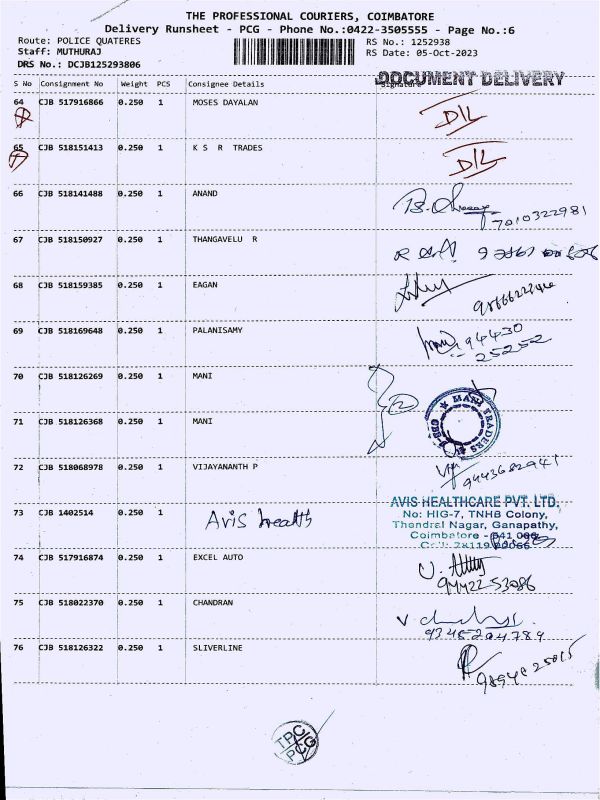 THE PROFESSIONAL COURIERS, COIMBATORE
Delivery Runsheet - PCG - Phone No.:0422-3505555 - Page No.:6
Route: POLICE QUATERES RS No.: 1252938
Staff: MUTHURAJ RS Date: 05-Oct-2023
DRS No.: DCJB125293806
DOCUMENT DELIVERY
S No Consignment No Weight PCS Consignee Details Signature
64 CJB 517916866 0.250 1 MOSES DAYALAN D/L
65 CJB 518151413 0.250 1 K S R TRADES D/L
66 CJB 518141488 0.250 1 ANAND
7010322981
67 CJB 518150927 0.250 1 THANGAVELU R
68 CJB 518159385 0.250 1 EAGAN
69 CJB 518169648 0.250 1 PALANISAMY 94430
25252
70 CJB 518126269 0.250 1 MANI
2
MANI TRADERS
71 CJB 518126368 0.250 1 MANI
72 CJB 518068978 0.250 1 VIJAYANANTH P
9443682941
73 CJB 1402514 0.250 1 Avis health
AVIS HEALTHCARE PVT. LTD.
No: HIG-7, TNHB Colony,
Thendral Nagar, Ganapathy,
Coimbatore - 641 006
74 CJB 517916874 0.250 1 EXCEL AUTO
9442253086
75 CJB 518022370 0.250 1 CHANDRAN
9345204789
76 CJB 518126322 0.250 1 SLIVERLINE
TPC
PCG